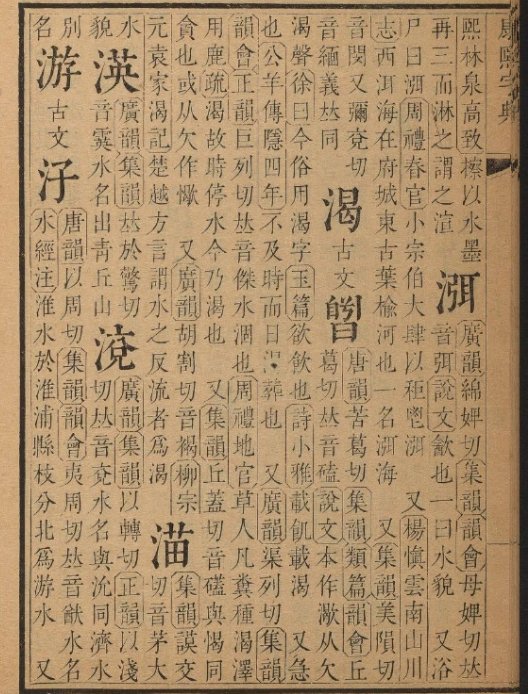 康熙字典
熙林泉高致擦以水墨
再三而淋之謂之渲
渳
廣韻綿婢切集韻韻會母婢切𠀤
音弭說文飮也一曰水貌 又浴
尸曰渳周禮春官小宗伯大肆以秬鬯渳 又楊愼雲南山川
志西洱海在府城東古葉榆河也一名渳海 又集韻美隕切
音閔又彌兖切
音緬義𠀤同
渴 古文
唐韻苦葛切集韻類篇韻會丘
葛切𠀤音磕說文本作㵣从欠
渴聲徐曰今俗用渴字玉篇欲飮也詩小雅載飢載渴 又急
也公羊傳隱四年不及時而日渴葬也 又廣韻渠列切集韻
韻會正韻巨列切𠀤音傑水涸也周禮地官草人凡糞種渴澤
用鹿疏渴故時停水今乃渴也 又集韻丘蓋切音磕與愒同
貪也或从欠作㵣 又廣韻胡割切音褐柳宗
元袁家渴記楚越方言謂水之反流者爲渴
渵
集韻謨交
切音茅大
水
貌
渶
廣韻集韻𠀤於驚切
音霙水名出靑丘山
渷
廣韻集韻以轉切正韻以淺
切𠀤音兖水名與沇同濟水
別
名
游 古文 汓
唐韻以周切集韻韻會夷周切𠀤音猷水名
水經注淮水於淮浦縣枝分北爲游水 又